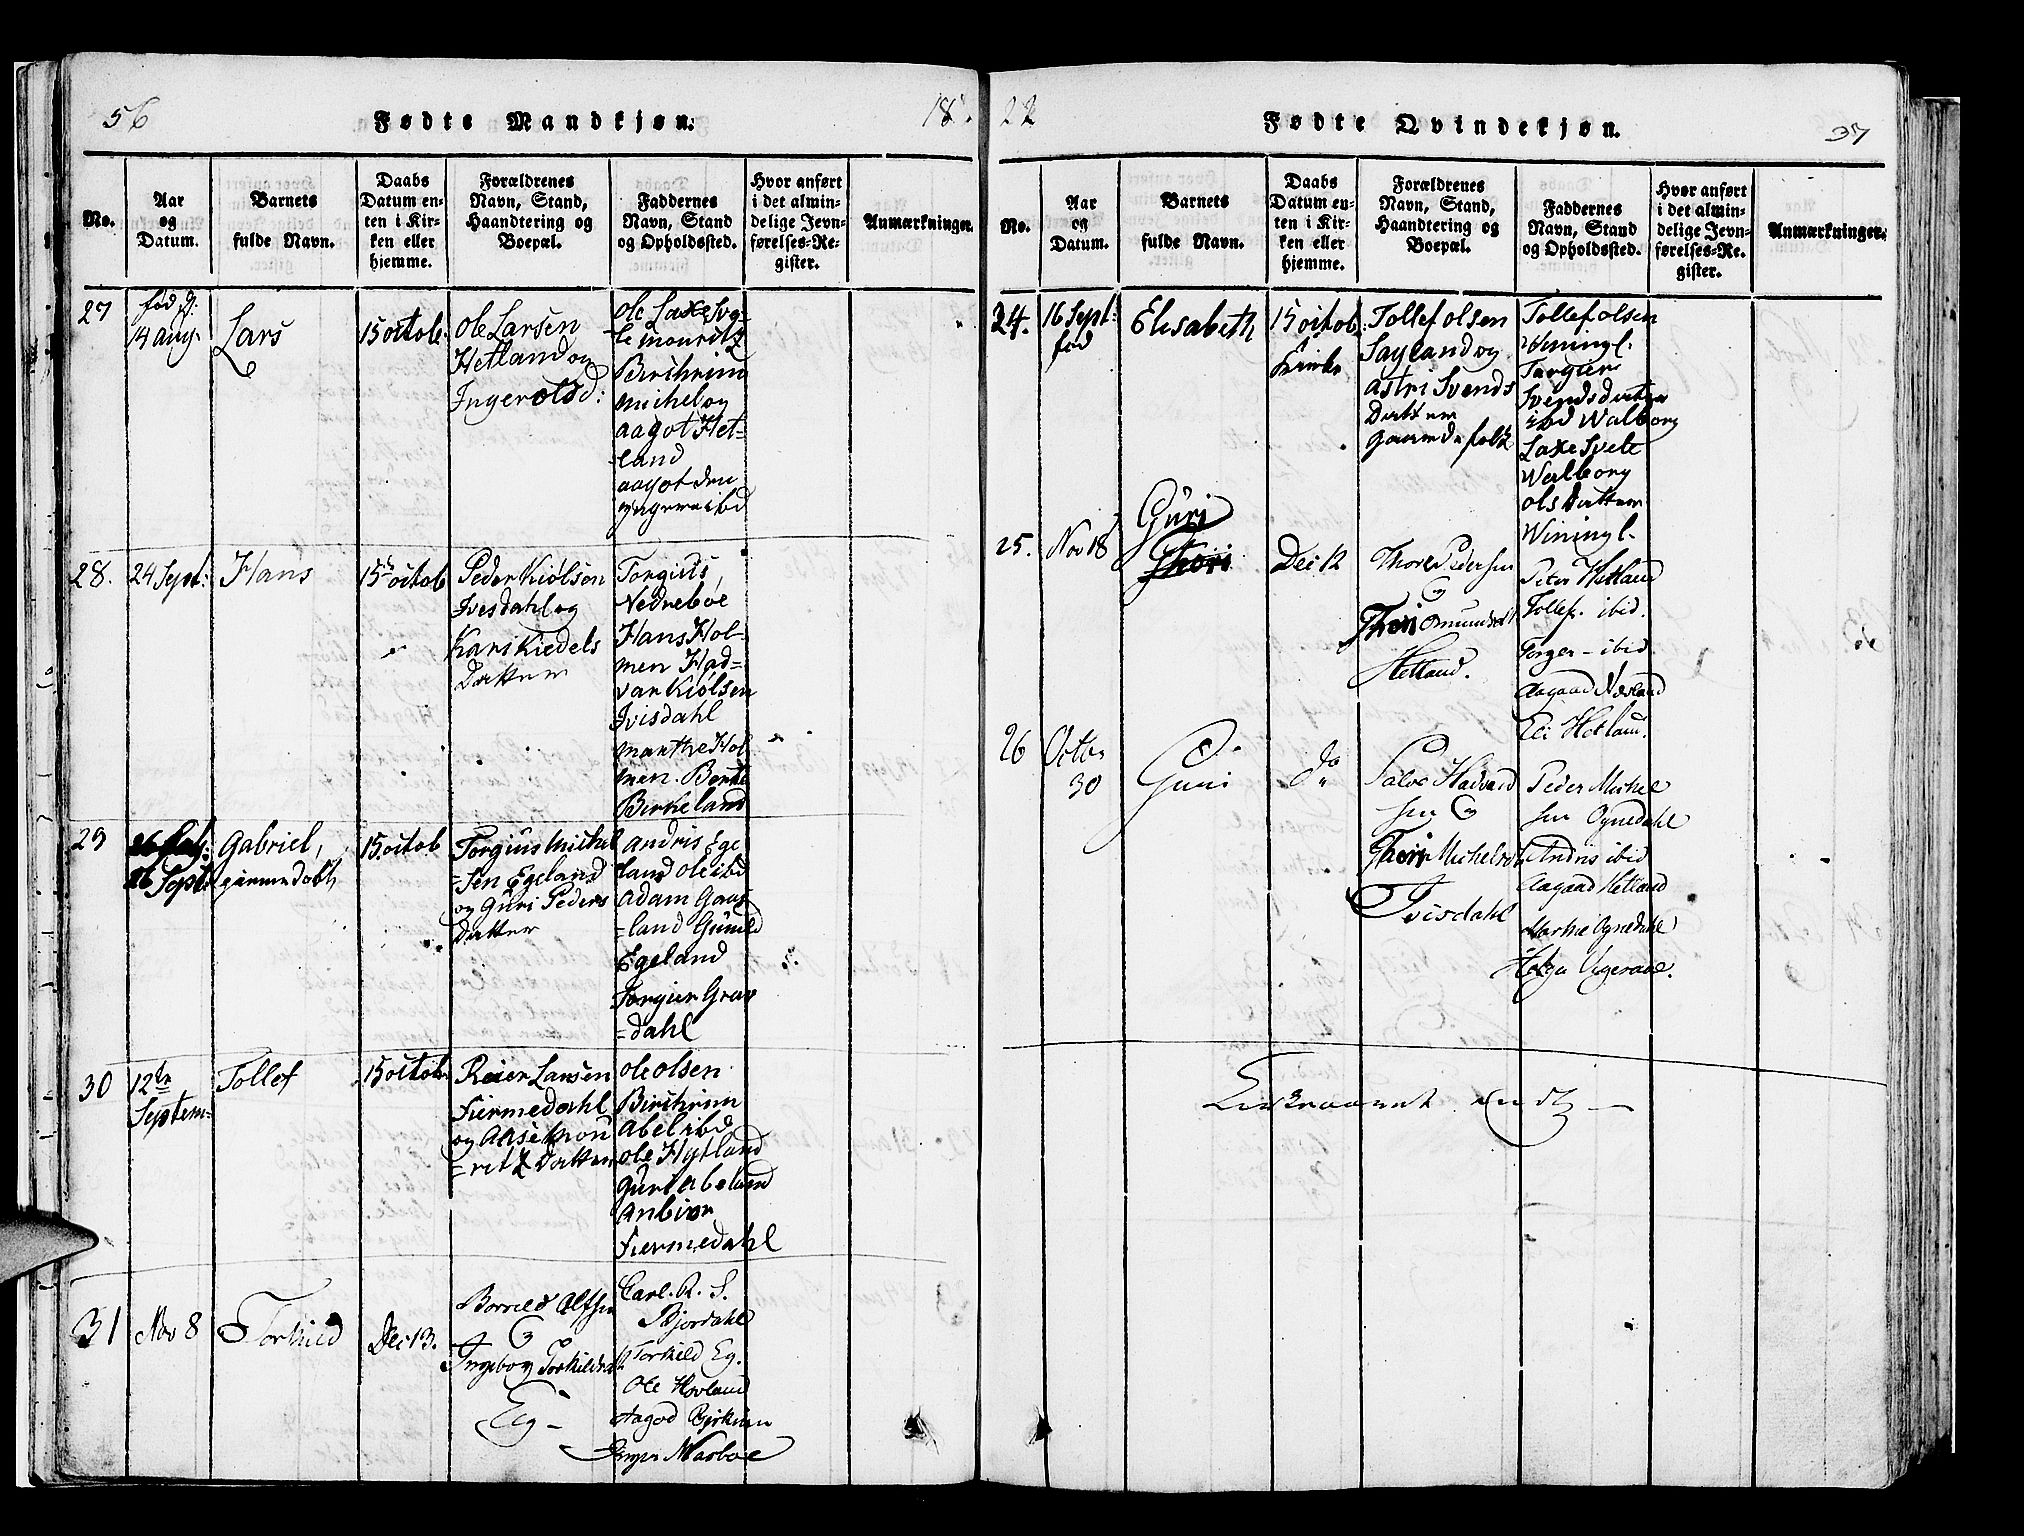 56
Fødte Mandkjøn.
18
No.
Aar
og
Datum.
Barnets
fulde Navn.
Daabs
Datum en-
ten i Kir-
ken eller
hjemme.
Forældrenes
Navn, Stand,
Haandtering og
Boepæl.
Faddernes
Navn, Stand
og Opholdssted.
Hvor anført
i det almin-
delige Jevn-
førelses-Re-
gister.
Anmærkninger.
27
fød d:
14 aug.
Lars
15 octob.
ole Larsen
Hetland og
Inger olsd:
ole Laxesve-
te mouritz
Birchrim
michel og
aagot Het-
land
aagot den
yngere ibd
28.
24 Sept:
Hans
15 octob
Peder Kiølson
Ivesdahl og
Kari Kiedels
Datter
Torgius
Nedreboe
Hans Hol-
men Had-
var Kiølsen
Ivisdahl
marthe Hol
men. Berte
Birkeland
29
26 Sept:
Gabriel,
hjemmedøbt
15. octob
Torgius Michel
=sen Egeland
og Guri Peders
datter
andris Ege
land ole ibd
adam Gaas
=land Gunild
Egeland
Torgier Grav
=dahl
30
12te
Septem=
Tollef
15 octob.
Reier Larsen
Fiermedahl
og Aase mou
=ritz Datter
ole olsen
Birchrim
abel ibd
ole Hytland
guri abeland
anbior
Fiermedahl
31
Nov 8
Torkild
Dec 13.
Borrild Alfsen
&
Ingeborg Torkildsd
Eeg -
Carl. R. S.
Bjordahl
Torkild Eg.
Ole Hovland
Aagod Birkrem
Inger Masboe
22
Fødte Qvindekjøn.
37
No.
Aar
og
Datum.
Barnets
fulde Navn.
Daabs
Datum en-
ten i Kir-
ken eller
hjemme.
Forældrenes
Navn, Stand,
Haandtering og
Boepæl.
Faddernes
Navn, Stand
og Opholdssted.
Hvor anført
i det almin-
delige Jevn-
førelses-Re-
gister.
Anmærkninger.
24.
16 Sept:
fød
Elisabeth
15 octob:
Kirke
Tollef olsen
Sayland og
astri Svends
Datter
gaardefolk
Tollef olsen
Winingl.
Torgier
Svendsdatter
ibd Walborg
Laxesvete
Walborg
olsdatter
Winingl.
25.
Nov 18
Guri
Thori
Dec 12
Thore Pedersen
&
Thori Omundsd
Hetland.
Peter Hetland
Tollef. ibid.
Torger - ibid.
Aagaad Nesland
Eli Hetland.
26
Octbr
30
Guri
do
Salve Hadvard
sen &
Thori Michelsd
Ivisdahl
Peder Michel
sen Ognedahl
Andris ibid
Aagaad Hetland
Marthe Ognedahl
Helga Vigesaae.
Kirkeaaret endt -